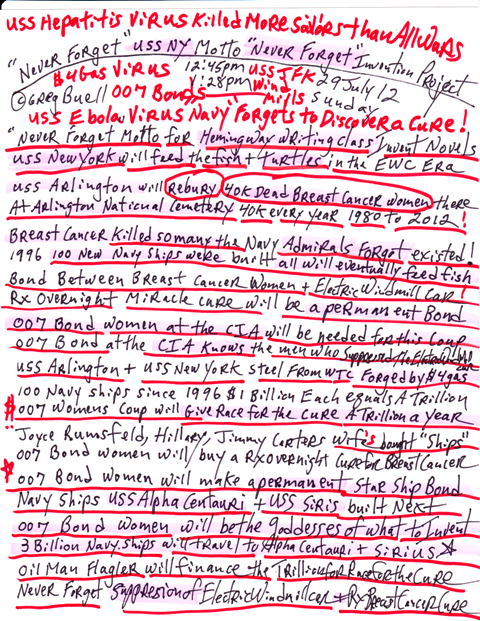 USS Hepatitis Virus Killed More Sailors than All Wars
"Never Forget" USS NY Motto "Never Forget" Invention Project
$4Gas Virus 12:45pm USS JFK 29 July 12
@Greg Buell 007 Bonds 1:28pm Wind Mills Sunday
USS Ebola Virus Navy "Forgets to Discover a Cure!
"Never Forget Motto for Hemingway Writing class Invent Novels
USS New York will feed the fish + turtles in the EWC ERA
USS Arlington will Rebury 40K Dead Breast Cancer women there
At Arlington National Cemetery 40K every year 1980 to 2012!
Breast Cancer Killed so many the Navy Admirals Forgot existed!
1996 100 New Navy Ships were built all will eventually feed fish
Bond Between Breast Cancer Women + Electric Windmill Car!
Rx Overnight Miracle cure will be a permanent Bond
007 Bond women at the CIA will be needed for this Coup
007 Bond at the CIA Knows the men who Suppressed the Electric
USS Arlington + USS New York Steel From WTC Forged by $4gas
100 Navy ships since 1996 $1 Billion Each equals A Trillion
$ 007 Womens Coup will Give Race for the Cure A Trillion a year
"Joyce Rumsfeld, Hillary, Jimmy Carters wife's bought "Ships"
007 Bond women will buy a Rx overnight Cure for Breast Cancer
007 Bond Women will make a permanent Star Ship Bond
Navy Ships USS Alpha Centauri + USS Siris built Next
007 Bond Women will be the goddesses of what to Invent
3 Billion Navy Ships will travel to Alpha Centauri + Sirius
Oil Man Flagler will finance the Trillion for Race for the Cure
Never Forget Suppression of Electric Windmill car + Rx Breast Cancer Cure